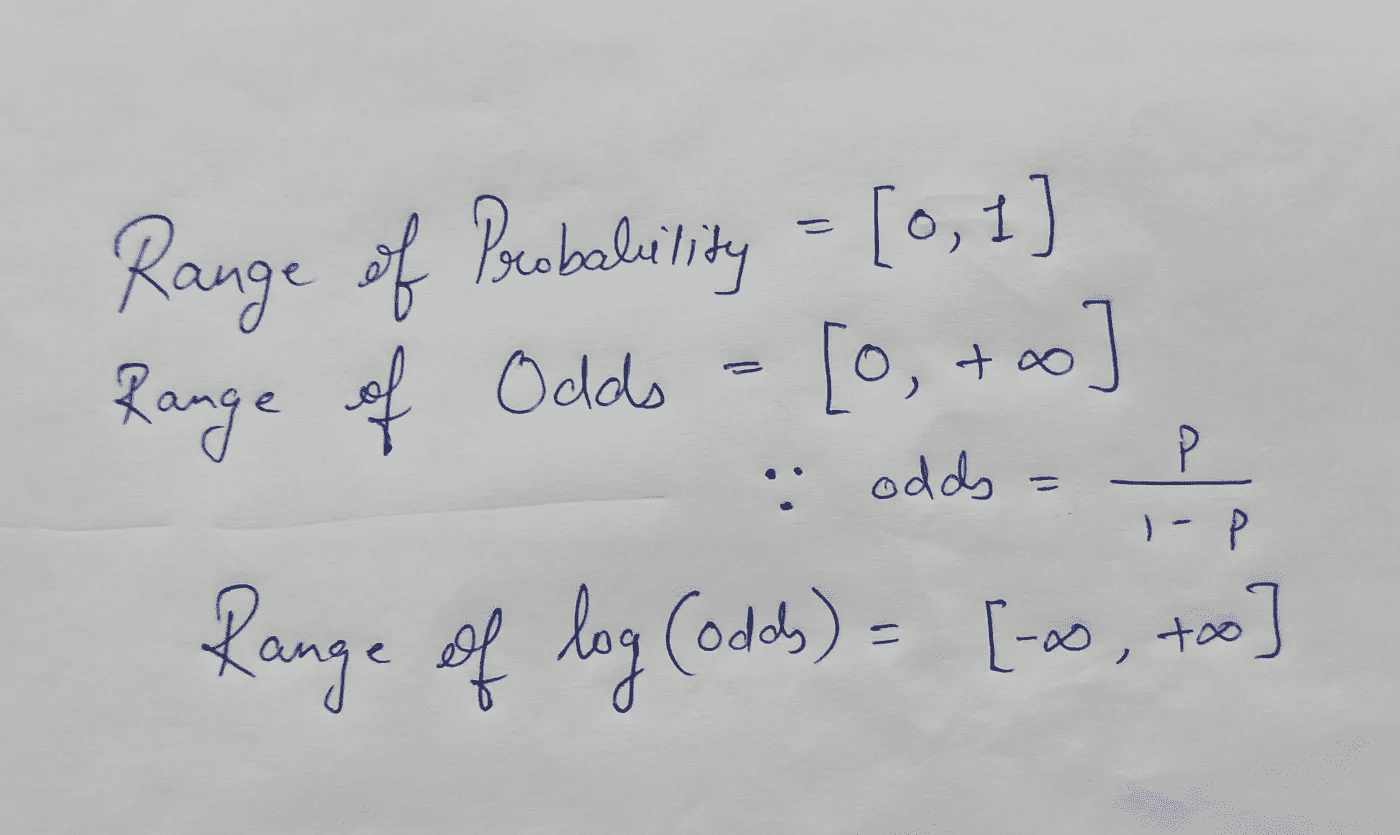 Range of Probability = [0, 1]
Range of Odds = [0, +∞]
∵ odds = P / 1 - P
Range of log (odds) = [-∞, +∞]